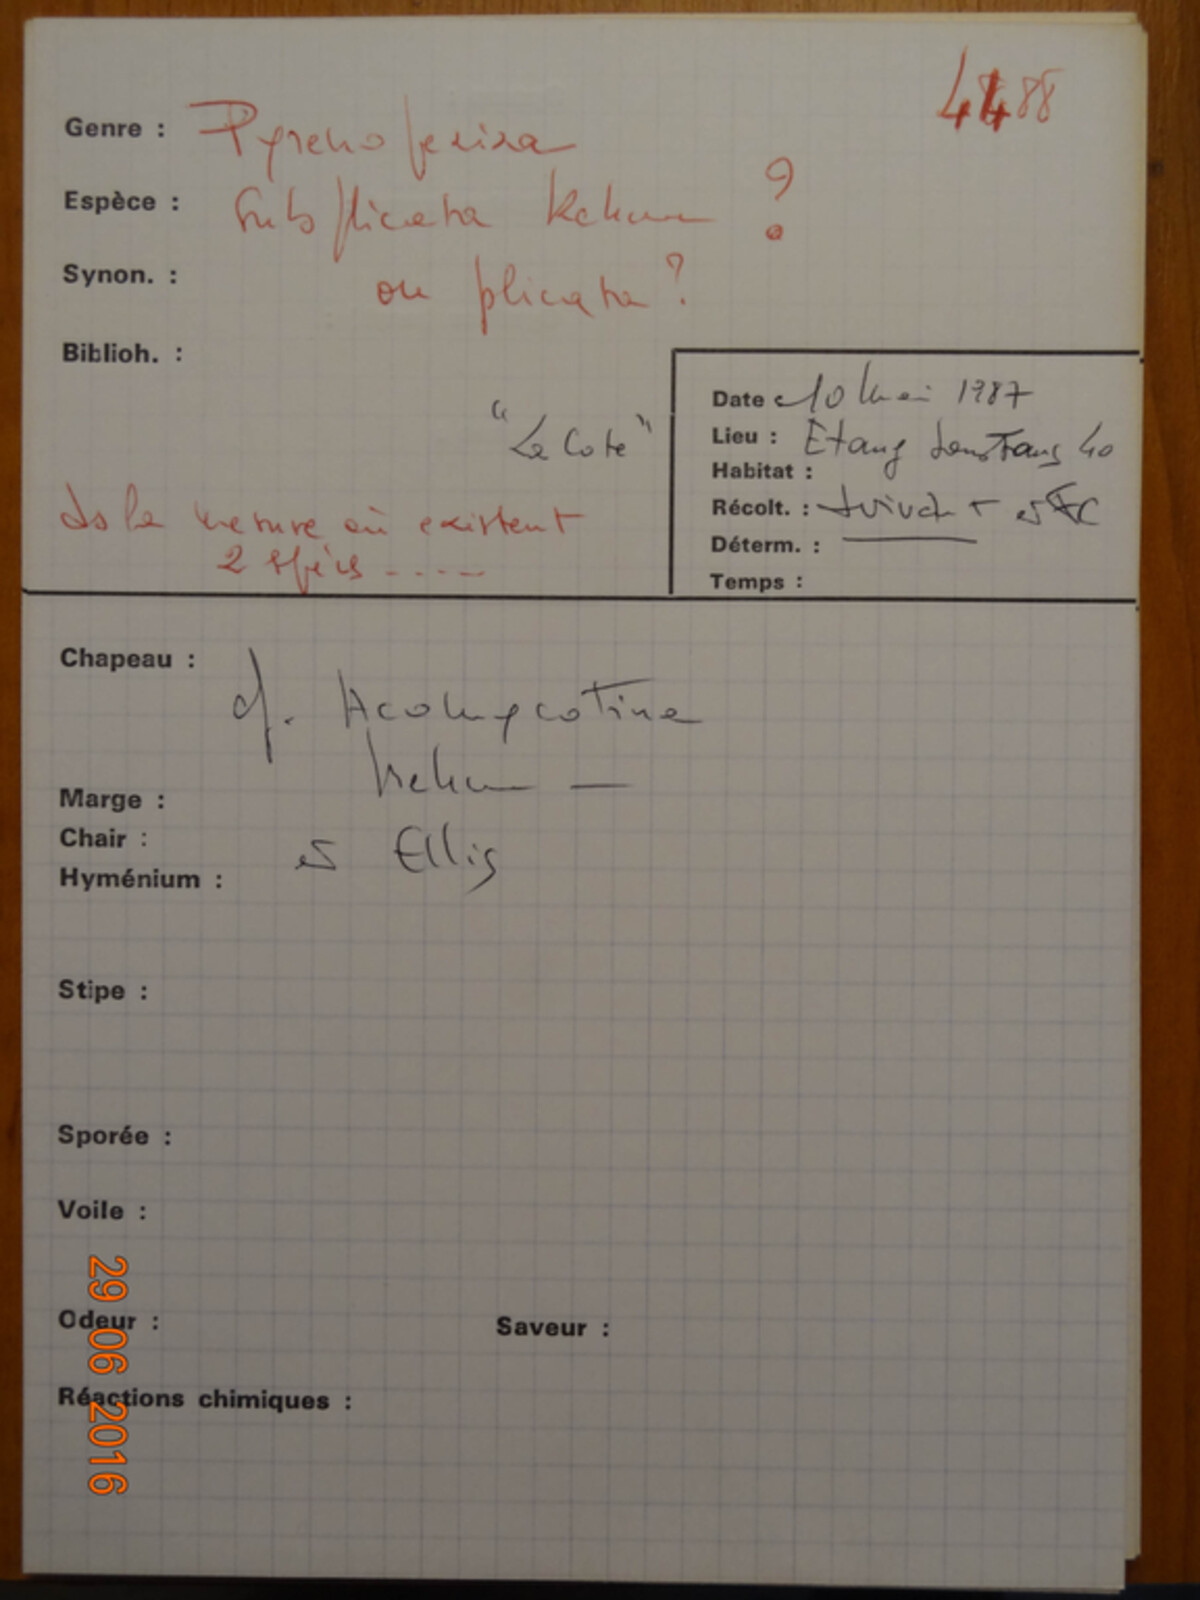 4488
Genre : Pyrenopeziza
Espèce : subplicata Rehm ?
Synon. : ou plicata ?
Biblioh. :
"La Cote"
Date : 10 Mai 1987
Lieu : Etang 40
Habitat :
Récolt. :
Déterm. :
Temps :
ds la mesure où existent
2 spécs .....
Chapeau : cf.
Rehm —
Marge :
Chair :
Hyménium :
Ellis
Stipe :
Sporée :
Voile :
Odeur : Saveur :
Réactions chimiques :
29 06 2016